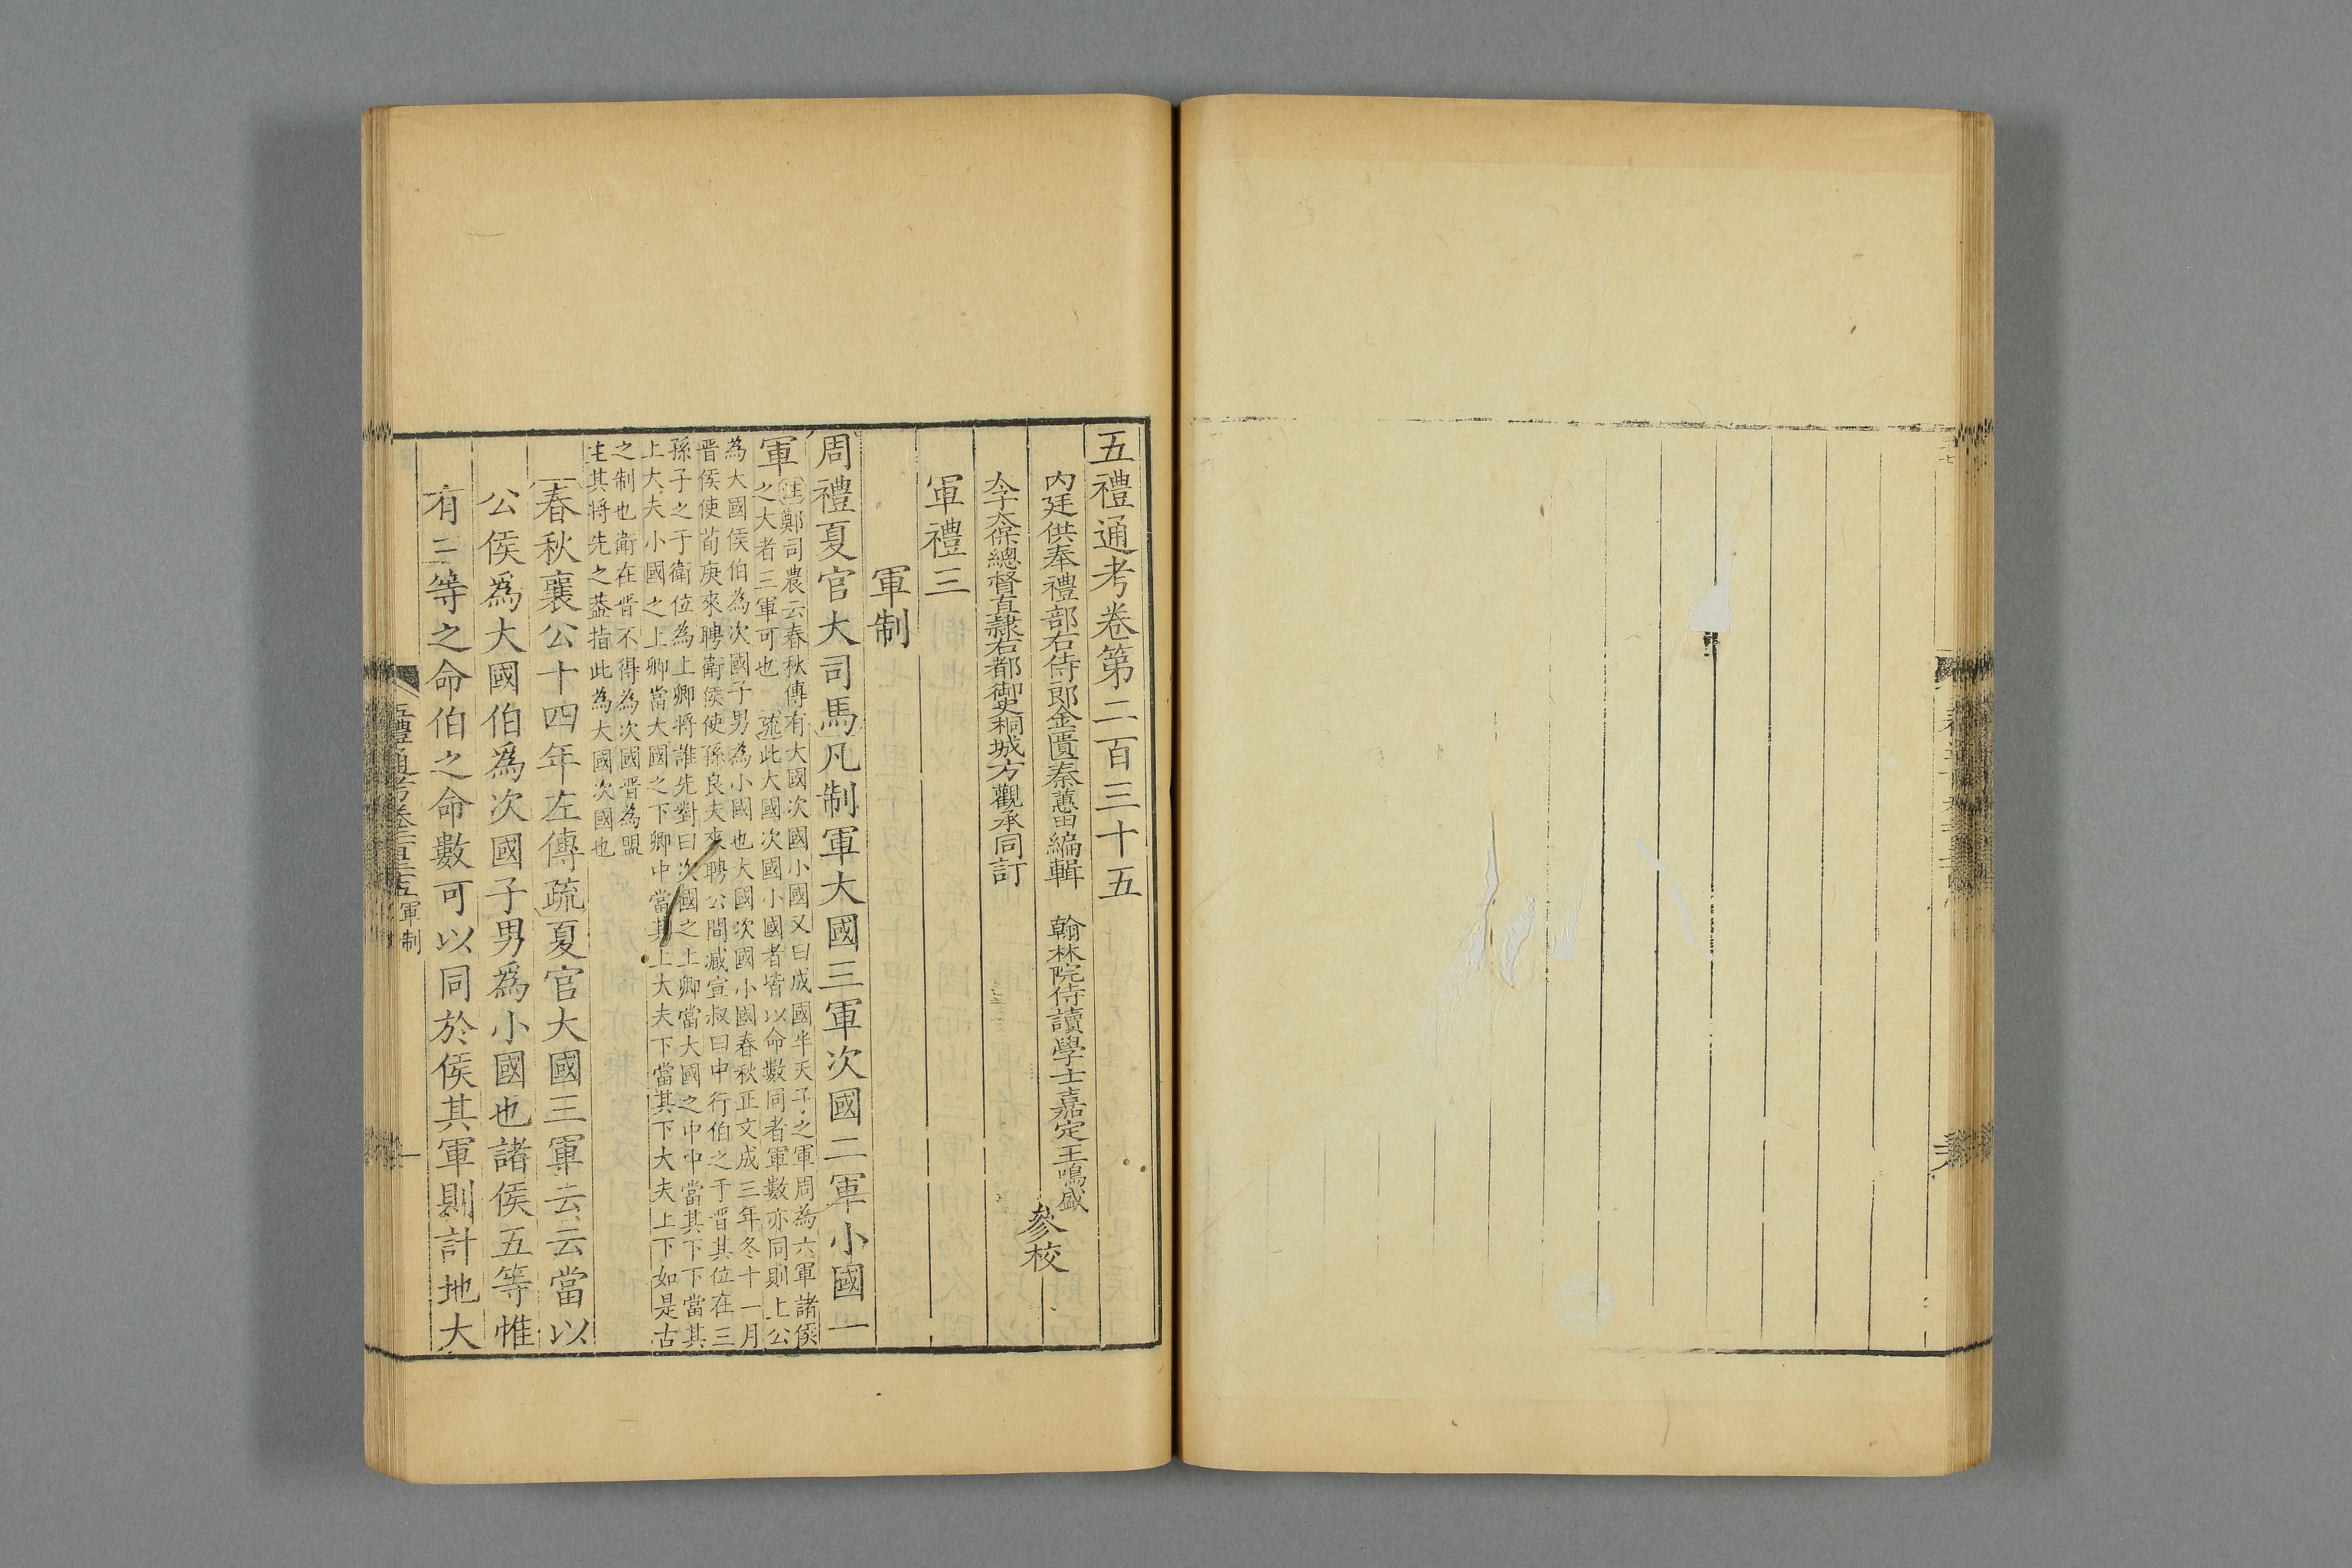 五禮通考卷第二百三十五
內廷供奉禮部右侍郎金匱秦蕙田編輯　翰林院侍讀學士嘉定王鳴盛
太子太保總督直隸右都御史桐城方觀承同訂
參校
軍禮三
軍制
周禮夏官大司馬凡制軍大國三軍次國二軍小國一
軍
注鄭司農云春秋傳有大國次國小國又曰成國半天子之軍周為六軍諸侯
之大者三軍可也　疏此大國次國小國者皆以命數同者軍數亦同則上公
為大國侯伯為次國子男為小國也大國次國小國春秋正文成三年冬十一月
晉侯使荀庚來聘衛侯使孫良夫來聘公問臧宣叔曰中行伯之于晉其位在三
孫子之于衛位為上卿將誰先對曰次國之上卿當大國之中中當其下下當其
上大夫小國之上卿當大國之下卿中當其上大夫下當其下大夫上下如是古
之制也衛在晉不得為次國晉為盟
主其將先之葢指此為大國次國也
春秋襄公十四年左傳疏夏官大國三軍云云當以
公侯爲大國伯爲次國子男爲小國也諸侯五等惟
有三等之命伯之命數可以同於侯其軍則計地大
五禮通考卷二百三十五　軍制
一